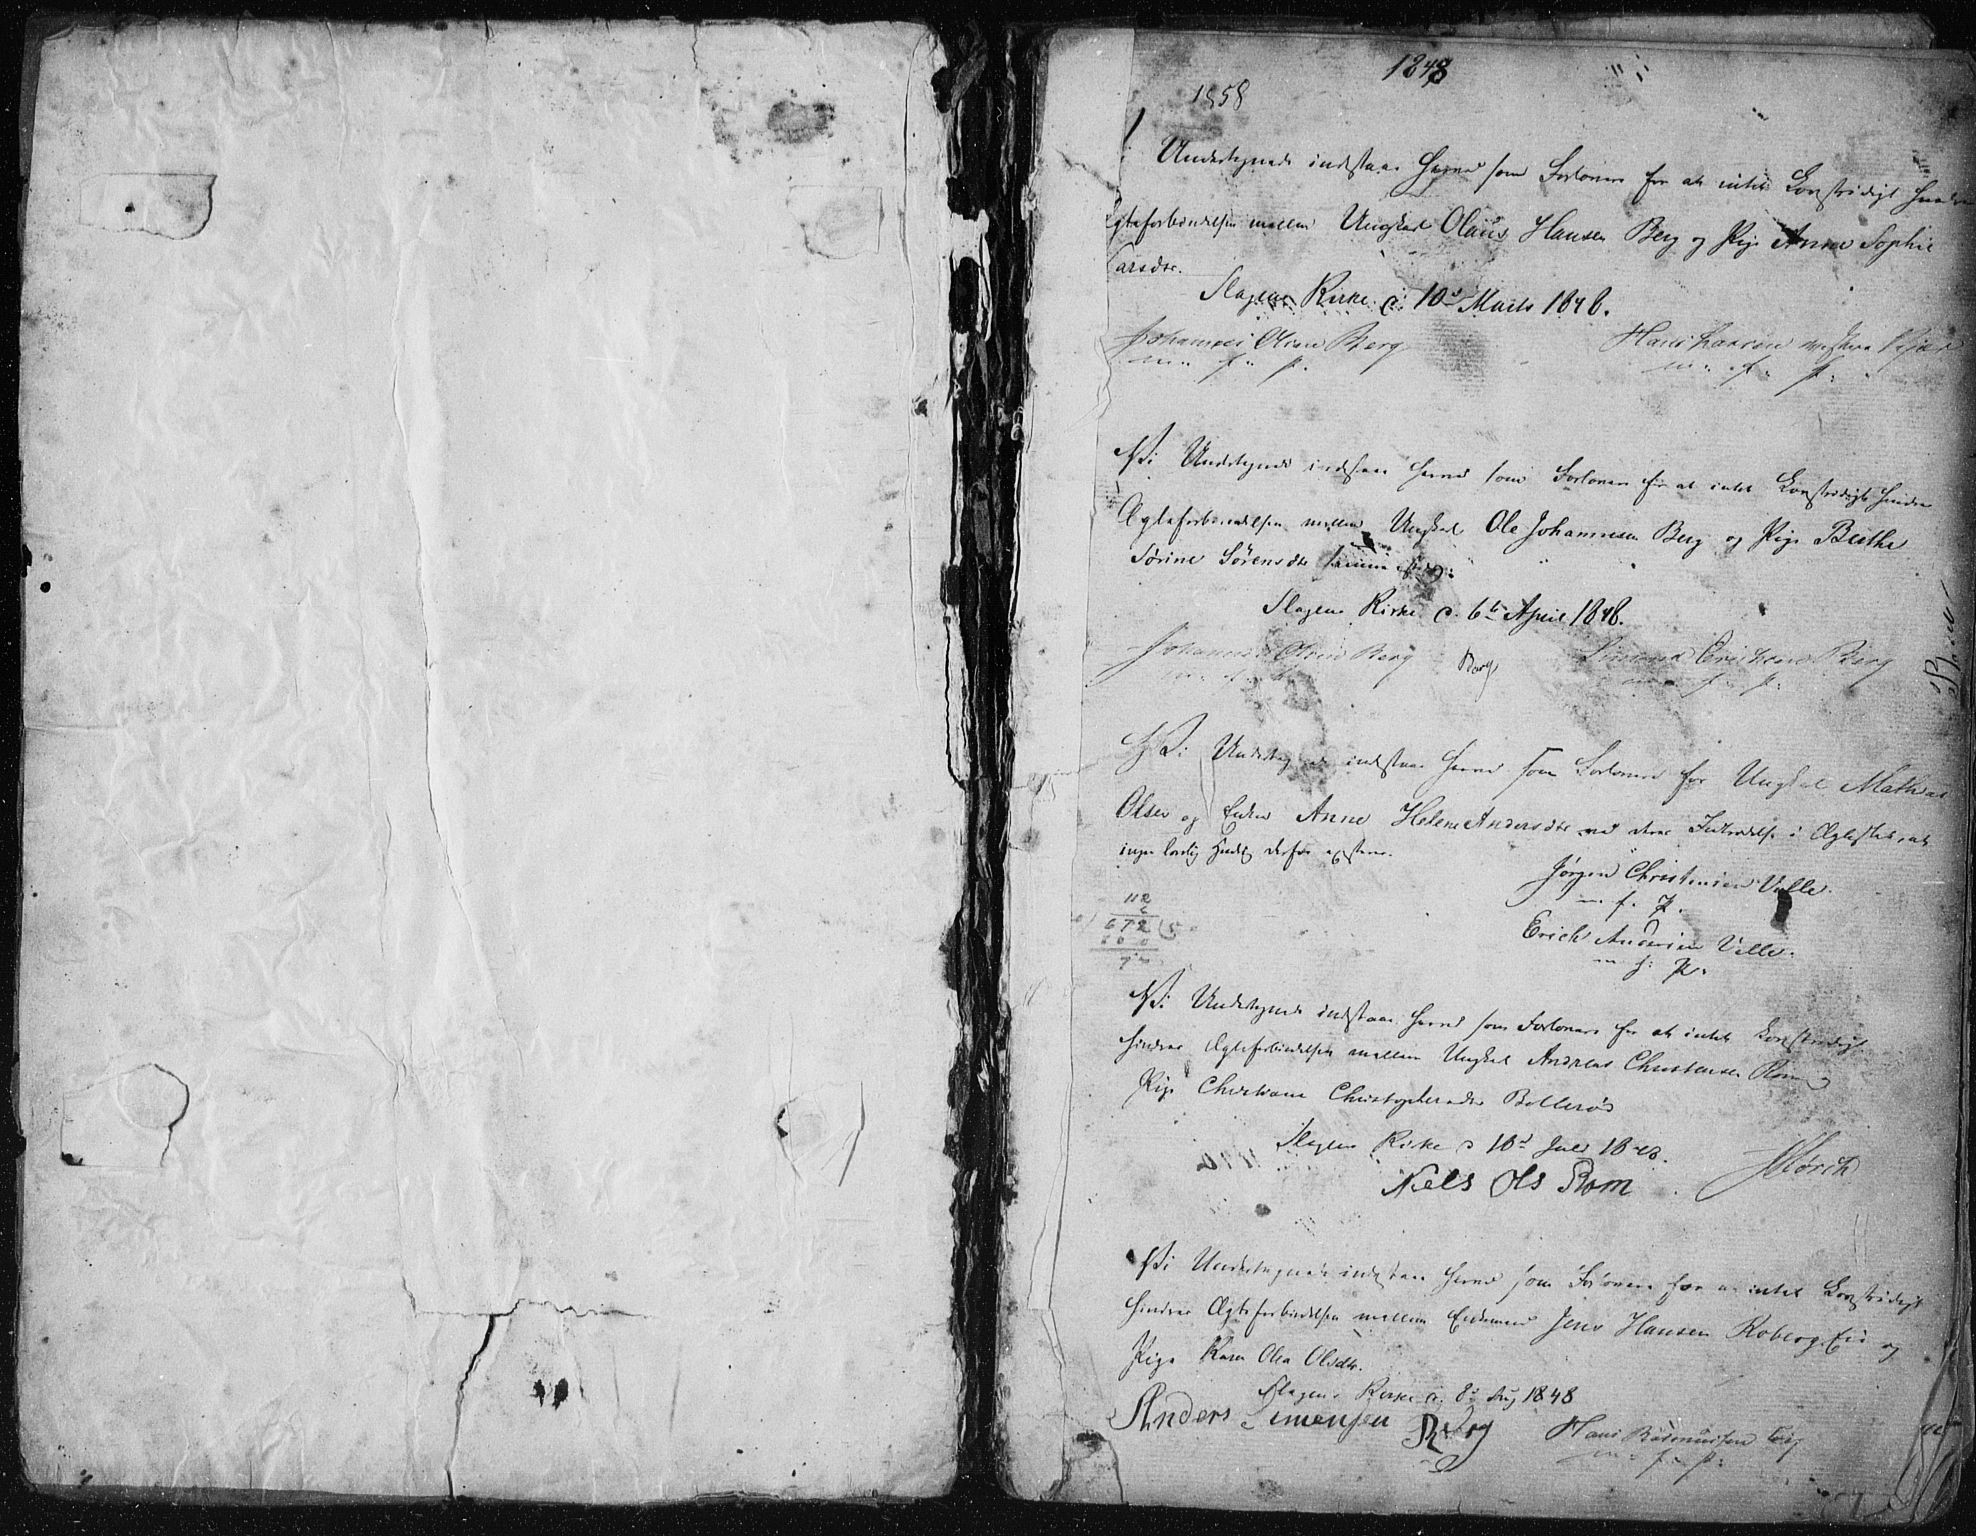 1848
1858
Undertegnede indestaae herved som Forlovere for at intet Lovstridigt hindrer
Ægteforbindelsen mellem Ungkarl Olaus Hansen Berg og Pige Anne Sophie
Larsdtr.
Slagens Kirke d. 10d Marts 1848.
Johannes Olsen Berg
Hans Larsen
m. f. p.
m. f. p.
Vi Undertegnede indestaae herved som Forlovere for at intet Lovstridigt hindrer
Ægteforbindelsen mellem Ungkarl Ole Johannesen Berg og Pige Berthe
Sørine Sörensdtr sammesteds.
Slagens Kirke d. 6te April 1848.
Johannes Olsen Berg Berg Simen Erichsen Berg
m. f. p.
m. f. p.
Vi Undertegnede indestaae herved som Forlovere for Ungkarl Mathias
Olsen og Enken Anne Helene Andersdtr ved deres Indtrædelse i Ægtestand, at
ingen lovlig Hindring derfor existerer.
Jørgen Christensen Velle.
m. f. P.
Erich Andersen Velle.
m. f. P.
112
6
672 (5
60 0
7
Vi Undertegnede indestaae herved som Forlovere for at intet Lovstridigt
hindrer Ægteforbindelsen mellem Ungkarl Andreas Christensen Rom og
Pige Christiane Christophersdtr Bollerös
Slagens Kirke d 18d Juli 1848.
Niels Ols Rom
Vi Undertegnede indestaae herved som Forlovere for at intet Lovstridigt
hindrer Ægteforbindelsen mellem Enkemand Jens Hansen Roberg Eie og
Pige Karen Olea Olsdtr.
Slagens Kirke d. 8d Aug 1848
Anders Simensen Berg Hans Rasmussen
m. f. p.